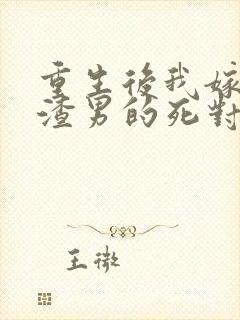 重生後我嫁
渣男的死對
王微